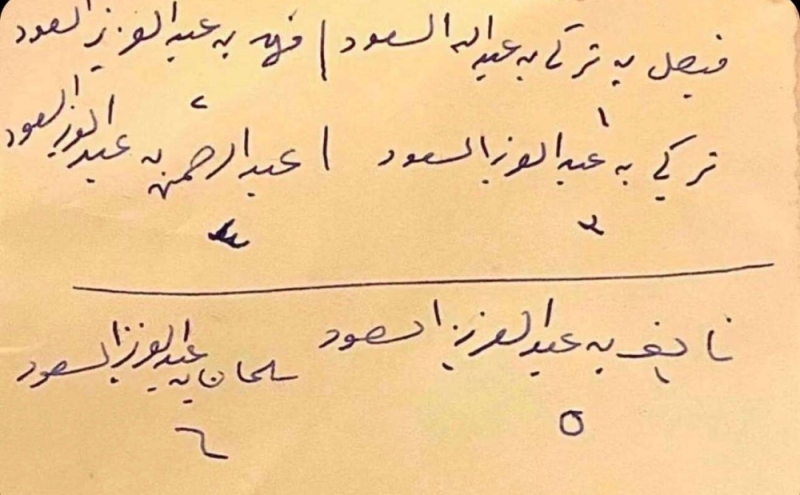 فيصل بن تركي بن عبدالله السعود / فهد بن عبدالعزيز السعود
١ ٢
تركي بن عبدالعزيز السعود / عبدالرحمن بن عبدالعزيز السعود
٣ ٤
نايف بن عبدالعزيز السعود سلمان بن عبدالعزيز السعود
٥ ٦